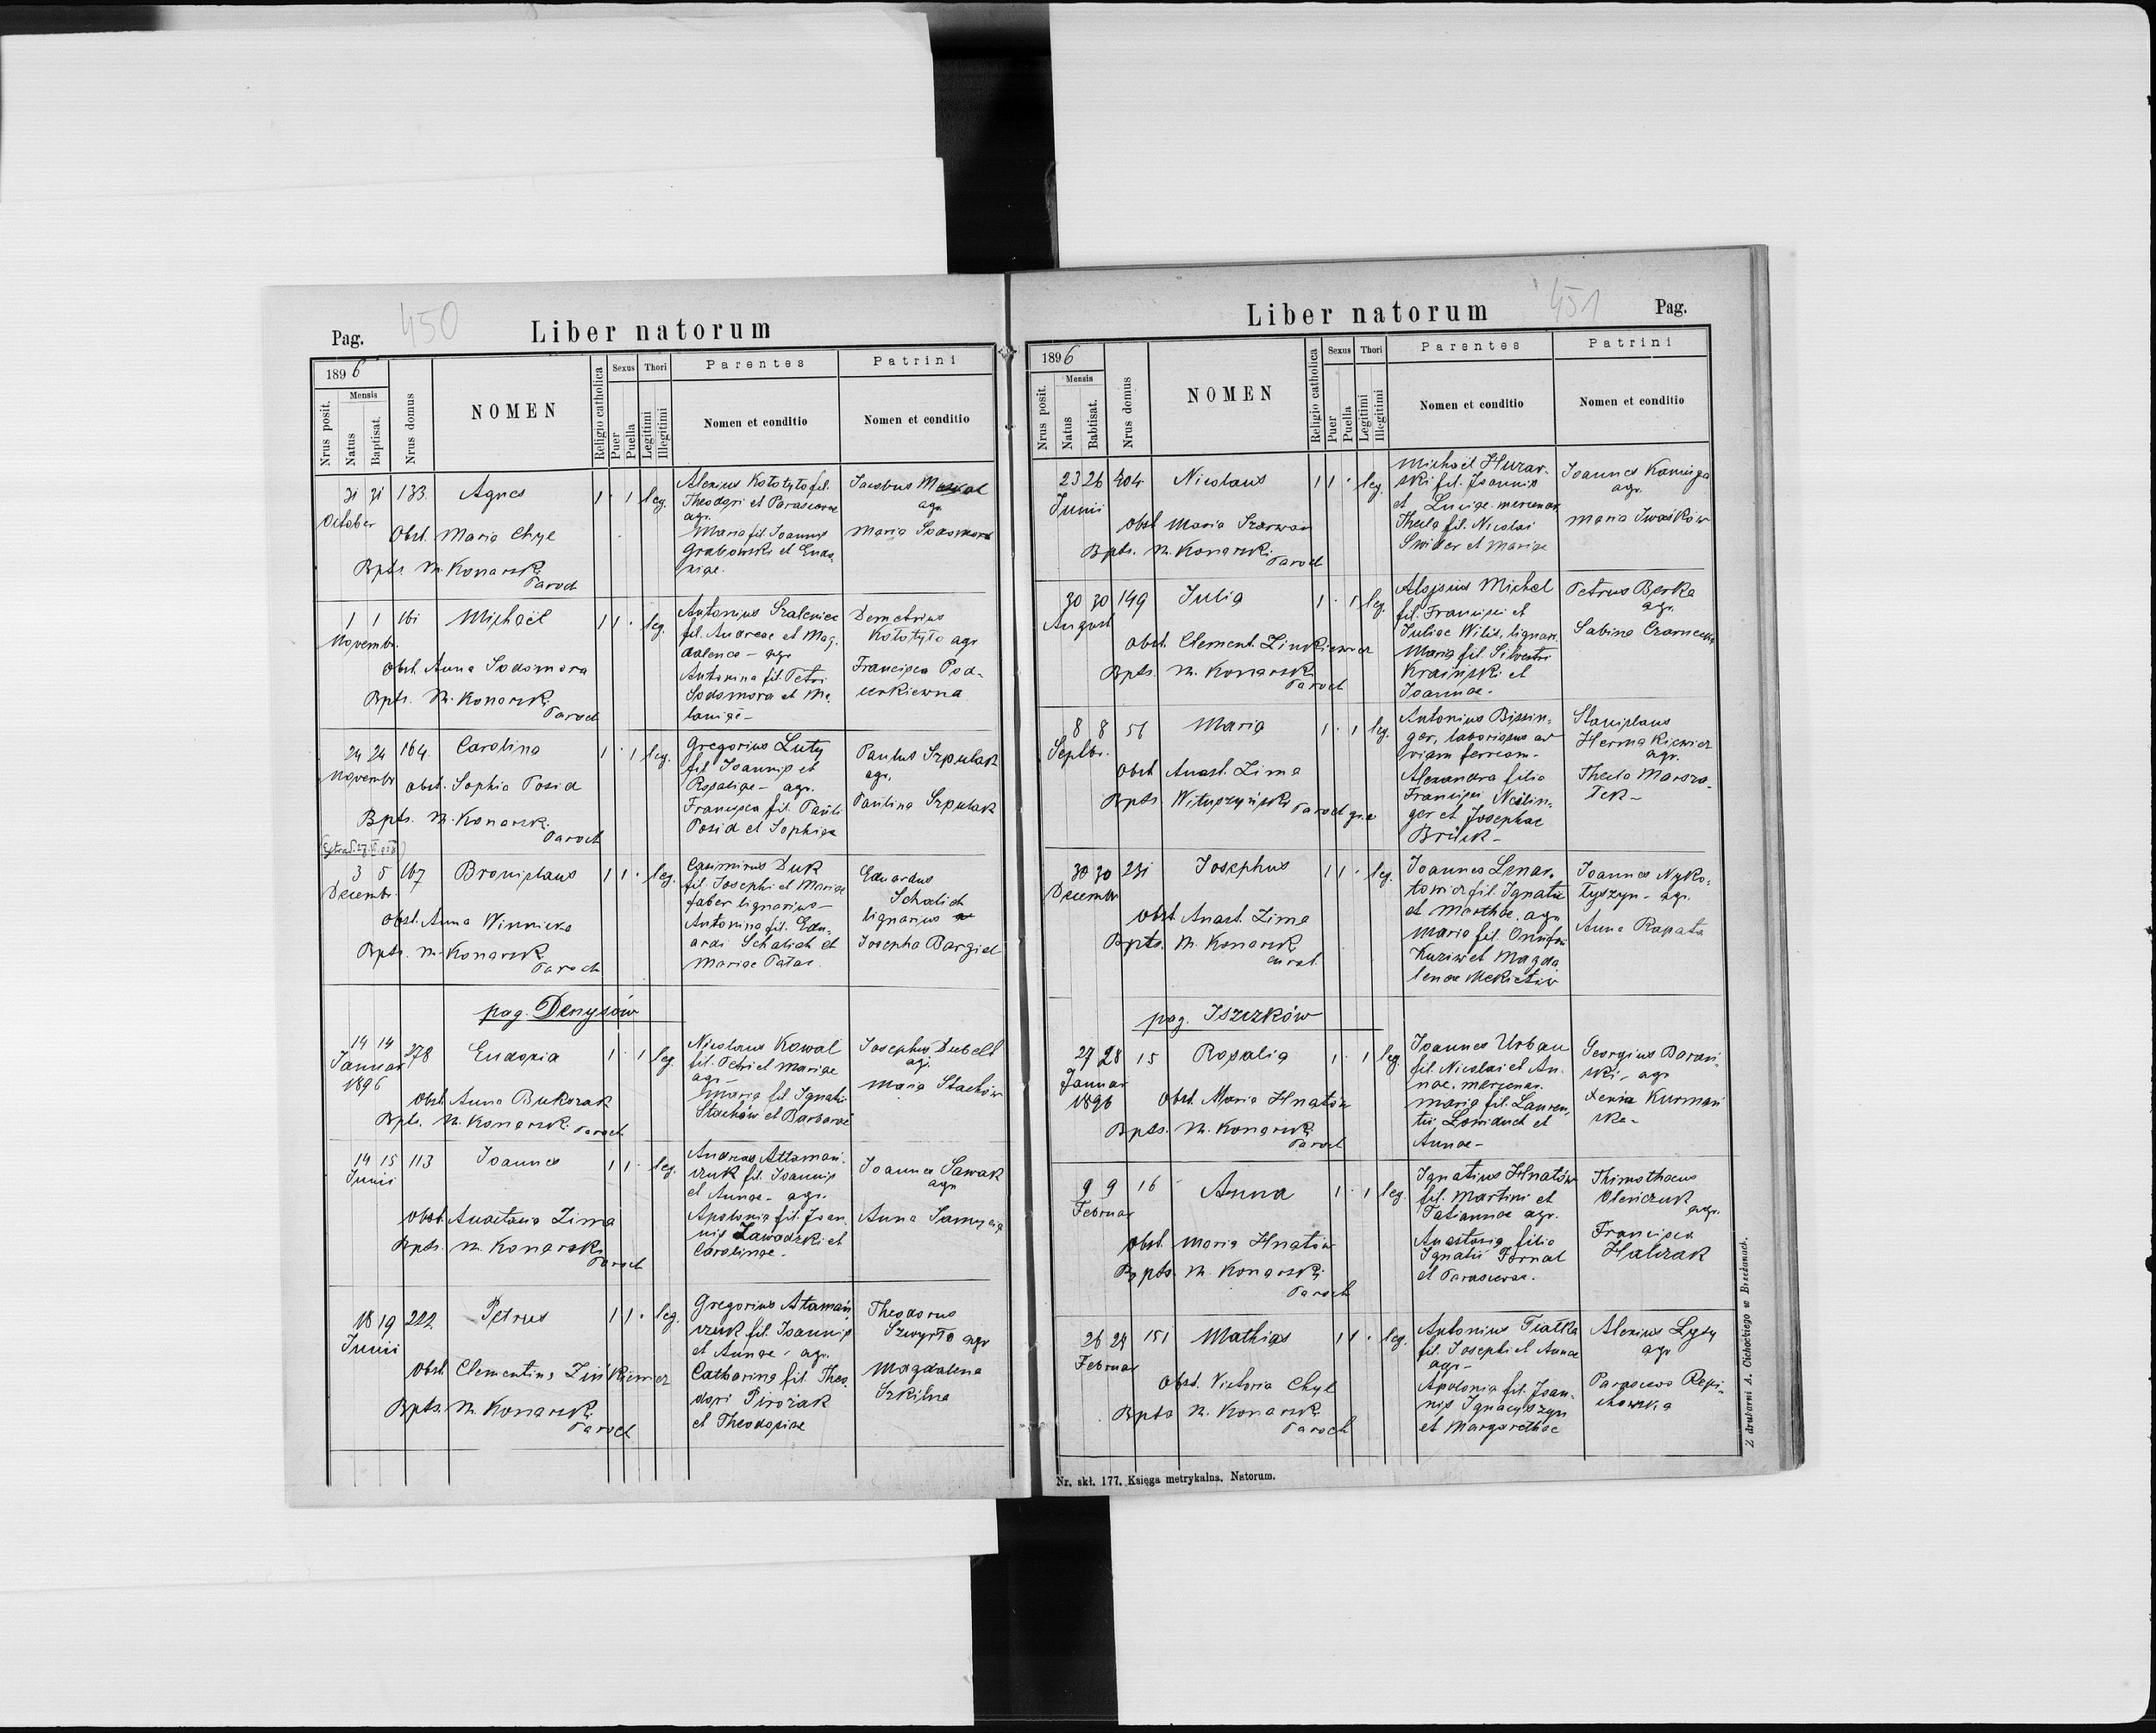 450
Pag.
Liber natorum
1896
Nrus posit.
Mensis
Natus
Baptisat.
Nrus domus
NOMEN
Religio catholica
Sexus
Puer
Puella
Thori
Legitimi
Illegitimi
Parentes
Nomen et conditio
Patrini
Nomen et conditio
31 31 133. Agnes 1 · 1 leg.
October
Obst. Maria Chyc
Bpts. M. Konarski
Paroch
Alexius Kołotyło fil.
Theodori et Parascevae
agr.
Maria fil. Joannis
Grabowski et Eudo
xiae.
Jacobus
agr.
Maria Sodomora
1 1 161 Michaël 1 1 · leg.
Novembr.
Obst. Anna Sodomora
Bpts. M. Konarski
Paroch
Antonius Szaleniec
fil. Andreae et Mag.
dalenae - agr.
Antonina fil. Petri
Sodomora et Me.
laniae -
Demetrius
Kołotyło agr
Francisca Pod-
24 24 164. Carolina 1 · 1 leg.
Novembr
Obst. Sophia Posid
Bpts. M. Konarski
Paroch
Gregorius Luty
fil. Joannis et
Rosaliae - agr.
Francisca fil. Pauli
Posid et Sophiae
Paulus Szpulak
agr.
Paulina Szpulak
3 5 167 Bronislaus 1 1 · leg.
Decembr.
Obst. Anna Winnicka
Bpts. M. Konarski
Paroch
Casimirus Duk
fil. Josephi et Mariae
faber lignarius -
Antonina fil. Edu.
ardi Schalich et
Mariae Pataс
Eduardus
Schalich
lignarius
Josepha Bargiel
pag. Denysów
14 14 278 Eudoxia 1 · 1 leg.
Januar
1896
Obst. Anna Bukozak
Bpts. M. Konarski Paroch
Nicolaus Kowal
fil. Petri et Mariae
agr -
Maria fil. Ignatii
Stachów et Barbarae
Josephus Dubelt
agr.
Maria Stachów
14 15 113 Joannes 1 1 · leg.
Junii
Obst. Anastasia Zima
Bpts. M. Konarski
Paroch
Andreas Attamań.
czuk fil. Joannis
et Annae - agr.
Apolonia fil. Joan.
nis Zawadzki et
Carolinae -
Joannes Sawak
agr
Anna
18 19 222 Petrus 1 1 · leg.
Junii
Obst. Clementina Zińkiewicz
Bpts. M. Konarski
Paroch
Gregorius Atamań
czuk fil. Joannis
et Annae - agr.
Catharina fil. Theo.
dori Pirożak
et Theodosiae
Theodorus
Szwyrło agr
Magdalena
Szkilna
451
Liber natorum
Pag.
1896
Nrus posit.
Mensis
Natus
Babtisat.
Nrus domus
NOMEN
Religio catholica
Sexus
Puer
Puella
Thori
Legitimi
Illegitimi
Parentes
Nomen et conditio
Patrini
Nomen et conditio
23 26 404 Nicolaus 1 1 · leg.
Junii
Obst Maria Szarwan
Bpts. M. Konarski
Paroch
Michaël Huzar.
ski fil. Joannis
et Luciae. mercenar
Thecla fil. Nicolai
Swider et Mariae
Joannes Kaminga
agr.
Maria Iwaśków
30 30 149 Julia 1 · 1 leg.
August
Obst. Clement. Zinkiewicz
Bpts. M. Konarski
Paroch
Aloysius Michel
fil. Francisci et
Juliae Wilis, lignar.
Maria fil. Silvestri
Kraiński et
Joannae.
Petrus Berka
agr.
Sabina Czarnecka
8 8 56 Maria 1 · 1 leg.
Septbr.
Obst Anast. Zima
Bpts Wituszyński Paroch gr. c
Antonius Bissin-
ger, laborissus ad
viam ferream.
Alexandra filia
Francisci Neilin-
ger et Josephae
Brilek -
Stanislaus
Hermakiewicz
agr.
Thecla Marsza.
łek -
30 30 231 Josephus 1 1 · leg.
Decembr
Obst Anast. Zima
Bpts. M. Konarski
curat.
Joannes Lenar.
towicz fil. Ignatii
et Marthae. agr.
Maria fil. Onufrii
Kuziw et Magda
lenae Mekietiw
Joannes Nyko-
łyszyn - agr.
Anna Rapata
pag. Iszczków
27 28 15 Rosalia 1 · 1 leg.
Januar
1896
Obst. Maria Hnatów
Bpts. M. Konarski
Paroch
Joannes Urban
fil. Nicolai et An.
nae. mercenar.
Maria fil. Lauren.
tii Lomiduch et
Annae -
Georgius Barań-
ski - agr
Xenia Kurmań
ska -
9 9 16 Anna 1 · 1 leg.
Februar
Obst. Maria Hnatów
Bpts. M. Konarski
Paroch
Ignatius Hnatów
fil. Martini et
Tatiannae agr.
Anastasia filia
Ignatii Fornal
et Parascevae.
Thimothaeus
Oleńczuk agr.
Francisca
Halczak
26 29 151 Mathias 1 1 · leg.
Februar
Obst. Victoria Chyc
Bpts M. Konarski
Paroch
Antonius Fiałka
fil. Josephi et Annae
agr -
Apolonia fil. Joan-
nis Ignacyszyn
et Margarethae
Alexius Łysy
agr
Parasceva Repi-
chowska
Nr. skł. 177. Księga metrykalna. Natorum.
Z drukarni A. Cichockiego w Brzeżanach.